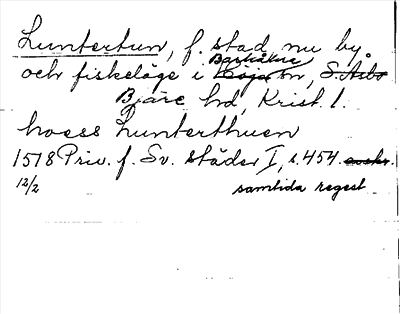 Luntertun, f. stad, nu by
och fiskeläge i Barkåkra sn, S. Åsbo
Bjäre hd, Krist. l.
hoess Lunterthuen
1518 Priv. f. Sv. städer I, s. 454. avskr.
12/2 samtida regest